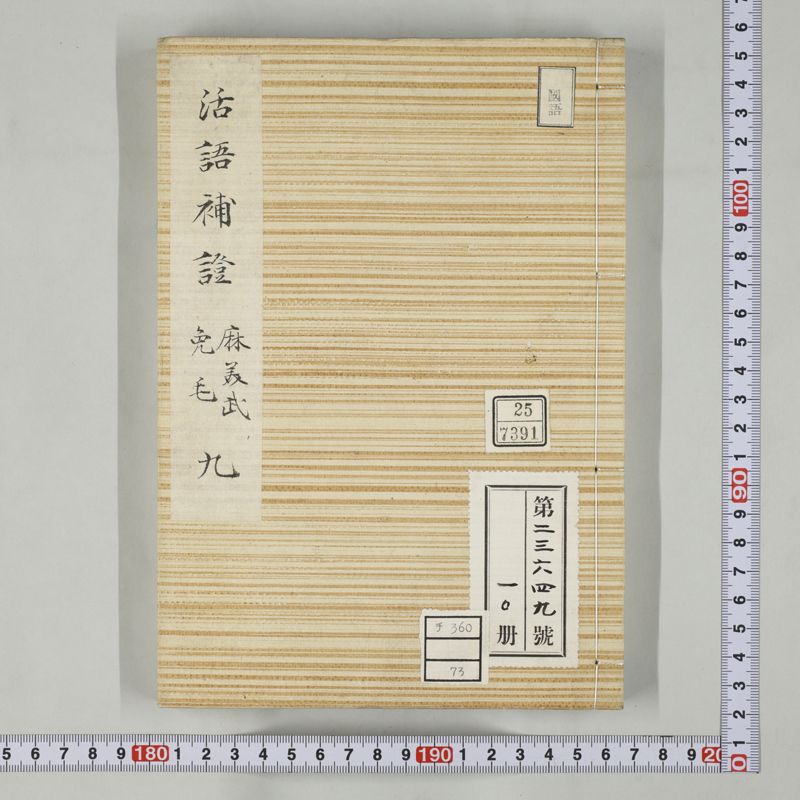 活語補證
麻美武
免毛
九
國語
25
7391
第二三六四九號
一〇册
子 360
73
5 6 7 8 9 180 1 2 3 4 5 6 7 8 9 190 1 2 3 4 5 6 7 8 9 20
6 7 1 2 3 4 5 6 7 8 9 100 1 2 3 4 5 6 7 8 9 90 1 2 3 4 5 6 7